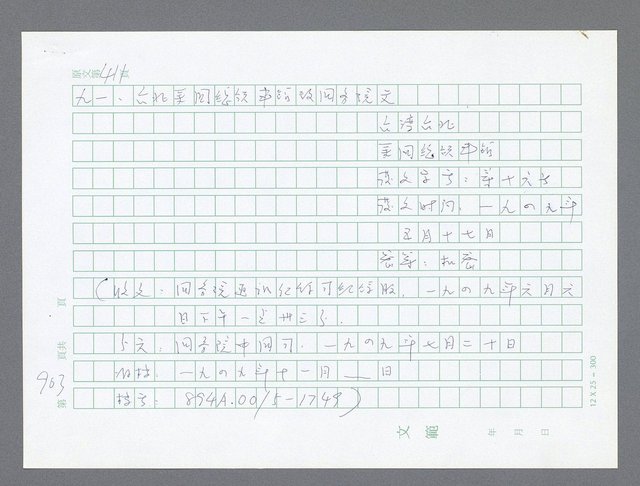 原文第411頁
九一、台北美国总领事馆致国务院文
台湾台北
美国总领事馆
发文字号：第十六号
发文时间：一九四九年
五月十七日
密等：机密
（收文：国务院通讯纪录可纪録股，一九四九年六月六
日下午一点卅三分．
分文：国务院中国司．一九四九年七月二十日
归档：一九四九年十一月＿日
档号：894A.00/5-1749）
頁
頁共
903
第
12 X 25 = 300
文範
年 月 日